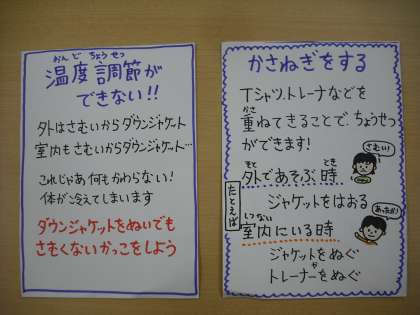 おんど ちょうせつ
温度調節が
できない!!
外はさむいからダウンジャケット
室内もさむいからダウンジャケット…
これじゃあ何もかわらない!
体が冷えてしまいます
ダウンジャケットをぬいでも
さむくないかっこをしよう
かさねぎをする
Tシャツ、トレーナなどを
かさ
重ねてきることで、ちょうせつ
ができます!
さむい!
そと とき
外であそぶ時
たとえば
ジャケットをはおる
あったかい
しつない
室内にいる時
ジャケットをぬぐ
や
トレーナーをぬぐ